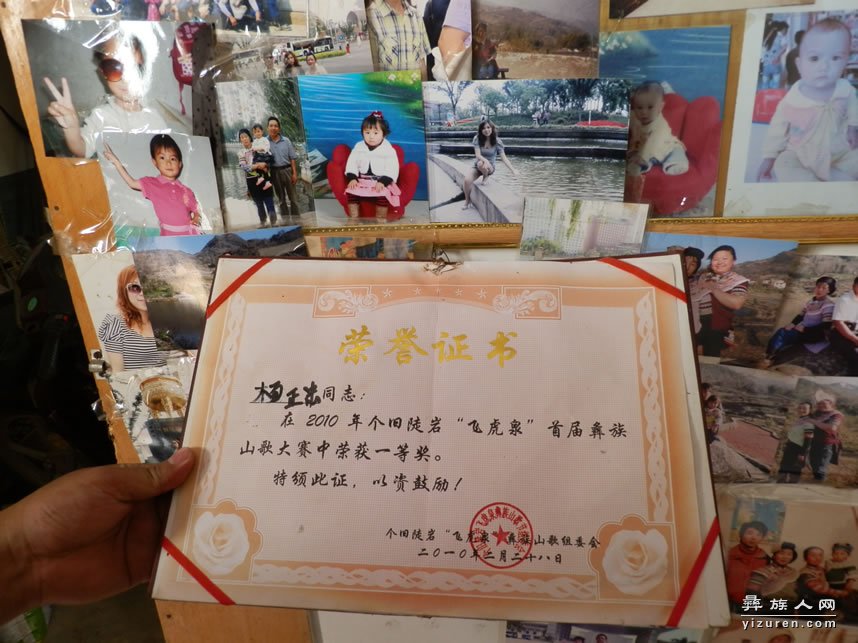 荣誉证书
杨正东同志：
在2010年个旧陡岩“飞虎泉”首届彝族
山歌大赛中荣获一等奖。
特颁此证，以资鼓励！
个旧陡岩“飞虎泉”彝族山歌组委会
二〇一〇年二月二十八日
彝族人网
yizuren.com